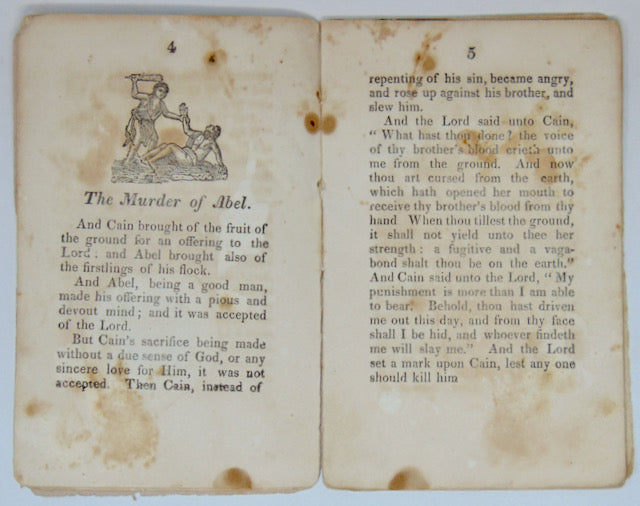 4
The Murder of Abel.
And Cain brought of the fruit of
the ground for an offering to the
Lord; and Abel brought also of
the firstlings of his flock.
And Abel, being a good man,
made his offering with a pious and
devout mind; and it was accepted
of the Lord.
But Cain's sacrifice being made
without a due sense of God, or any
sincere love for Him, it was not
accepted. Then Cain, instead of
5
repenting of his sin, became angry,
and rose up against his brother, and
slew him.
And the Lord said unto Cain,
" What hast thou done? the voice
of thy brother's blood crieth unto
me from the ground. And now
thou art cursed from the earth,
which hath opened her mouth to
receive thy brother's blood from thy
hand When thou tillest the ground,
it shall not yield unto thee her
strength: a fugitive and a vaga-
bond shalt thou be on the earth."
And Cain said unto the Lord, " My
punishment is more than I am able
to bear. Behold, thou hast driven
me out this day, and from thy face
shall I be hid, and whoever findeth
me will slay me." And the Lord
set a mark upon Cain, lest any one
should kill him